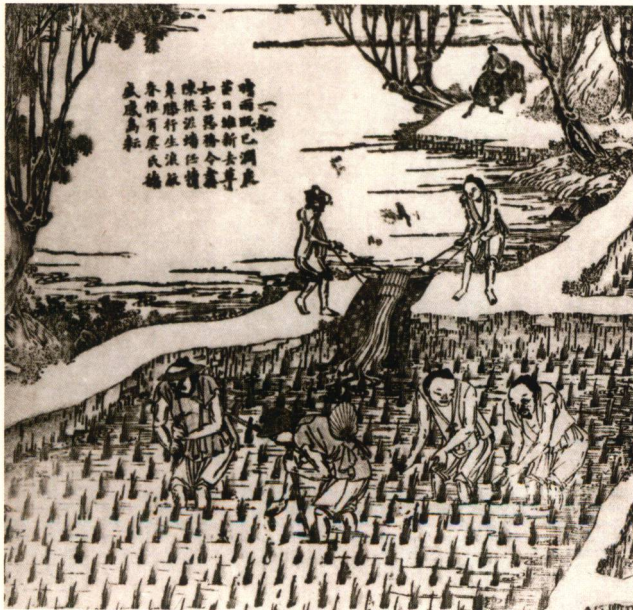 一耘
時雨既已潤良
苗日維新去草
如去惡務令盡
陳根泥蟠任犢
鼻膝行生浪紋
眷惟有虞氏
耘